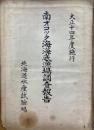 大正十四年度施行
南オコック海海洋調査報告
北海道水産試験場